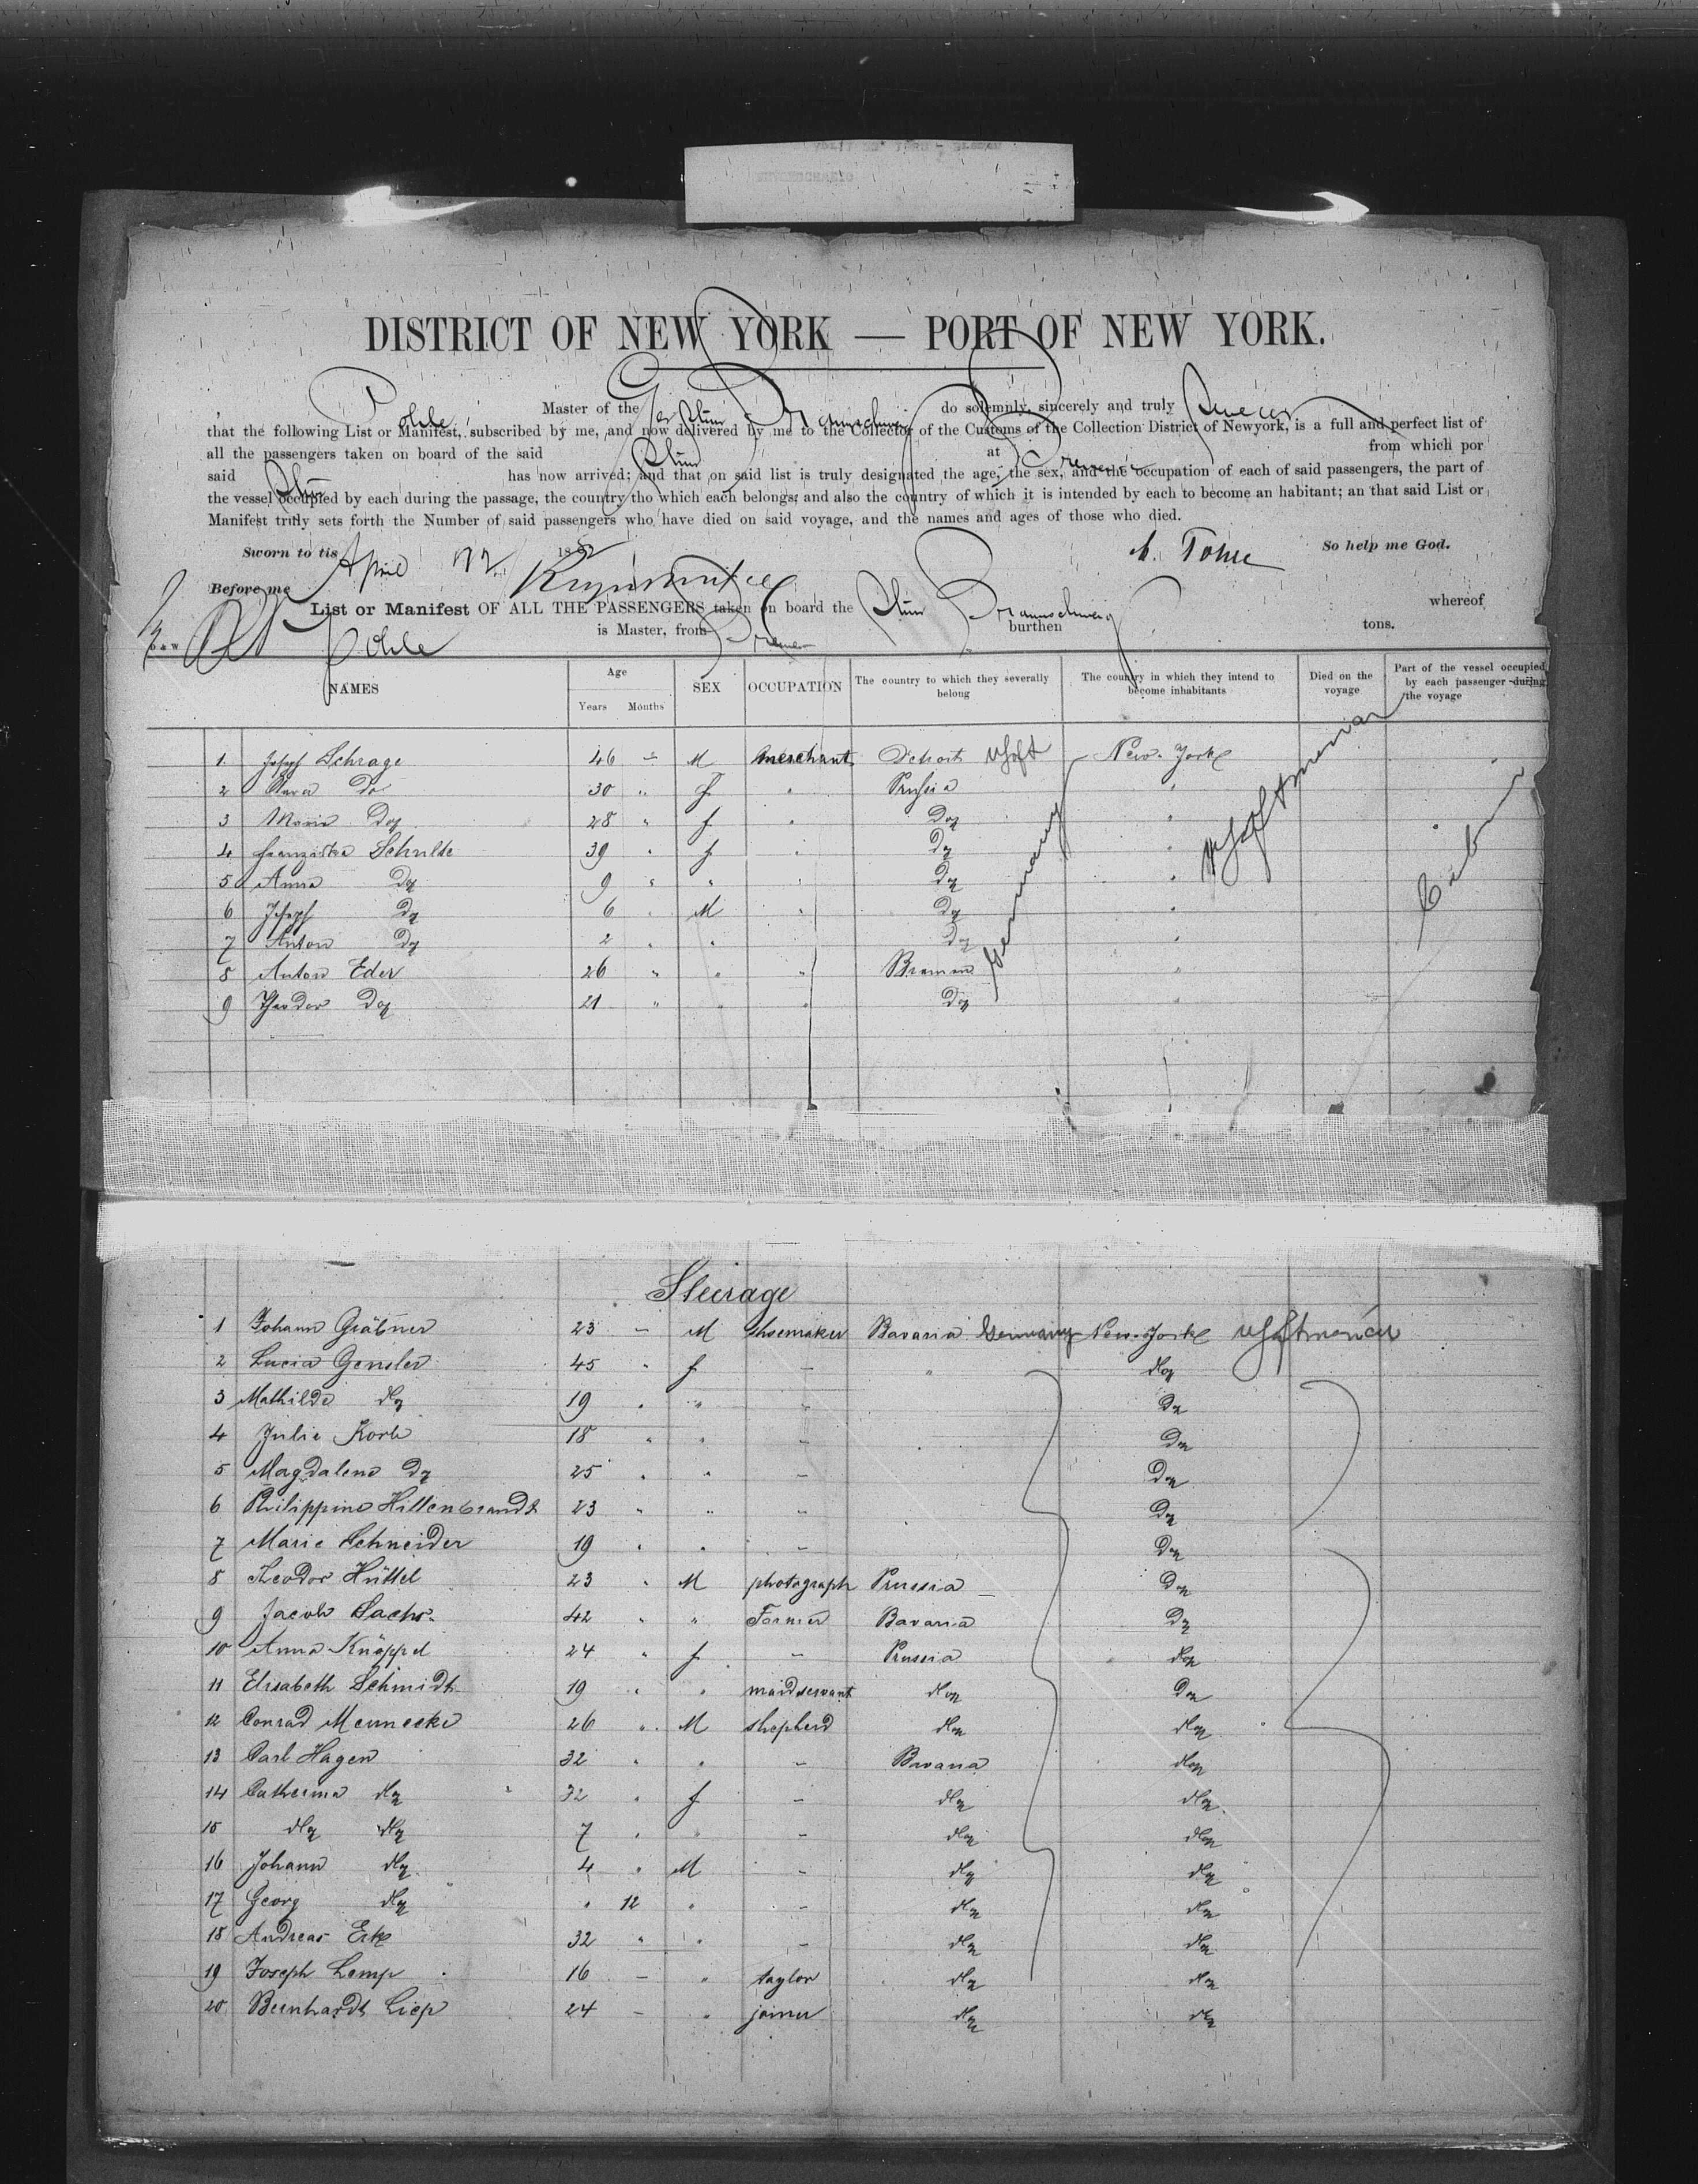 DISTRICT OF NEW YORK — PORT OF NEW YORK.
Pohle Master of the Ger Stim Braunschweig do solemnly, sincerely and truly swear
that the following List or Manifest, subscribed by me, and now delivered by me to the Collector of the Customs of the Collection District of Newyork, is a full and perfect list of
all the passengers taken on board of the said Stim at Bremen from which por
said Stim has now arrived; and that on said list is truly designated the age, the sex, and the occupation of each of said passengers, the part of
the vessel occupied by each during the passage, the country tho which each belongs; and also the country of which it is intended by each to become an habitant; an that said List or
Manifest trully sets forth the Number of said passengers who have died on said voyage, and the names and ages of those who died.
Sworn to tis April 1882 So help me God.
Before me
List or Manifest OF ALL THE PASSENGERS taken on board the Stim Braunschweig whereof
Pohle is Master, from Bremen burthen tons.
NAMES Age Years Months SEX OCCUPATION The country to which they severally belong The country in which they intend to become inhabitants Died on the voyage Part of the vessel occupied by each passenger during the voyage
1 Joseph Schrage 46 - M merchant Detroit New-York
2 Clara Do 30 " f " Prussia "
3 Maria Do 28 " f " Do "
4 Franziska Schulte 39 " f " Do "
5 Anna Do 9 " " " Do "
6 Joseph Do 6 " M " Do "
7 Anton Do 2 " " Do "
8 Anton Eder 26 " " " Bremen "
9 Theodor Do 21 " " " Do "
Germany
Cabin
Steerage
1 Johann Gräbner 23 - M shoemaker Bavaria Germany New-York
2 Lucia Gensler 45 " f - " do
3 Mathilde do 19 " " - Do
4 Julie Korb 18 " " - Do
5 Magdalena Do 25 " " - Do
6 Philippine Hillenbrandt 23 " " - Do
7 Marie Schneider 19 " " - Do
8 Theodor Hüttel 23 " M photograph Prussia Do
9 Jacob Sachs 42 " " Farmer Bavaria Do
10 Anna Knöppel 24 " f - Prussia do
11 Elisabeth Schmidt 19 " " maidservant do Do
12 Conrad Mennecke 26 " M shepherd do do
13 Carl Hagen 32 " " - Bavaria do
14 Catherina do 32 " f - do do
15 do do 7 " " - do do
16 Johann do 4 " M - do do
17 Georg do " 12 " - do do
18 Andreas 32 " " - do do
19 Joseph Lemp 16 - " taylor do do
20 Bernhardt Liep 24 - " joiner do do